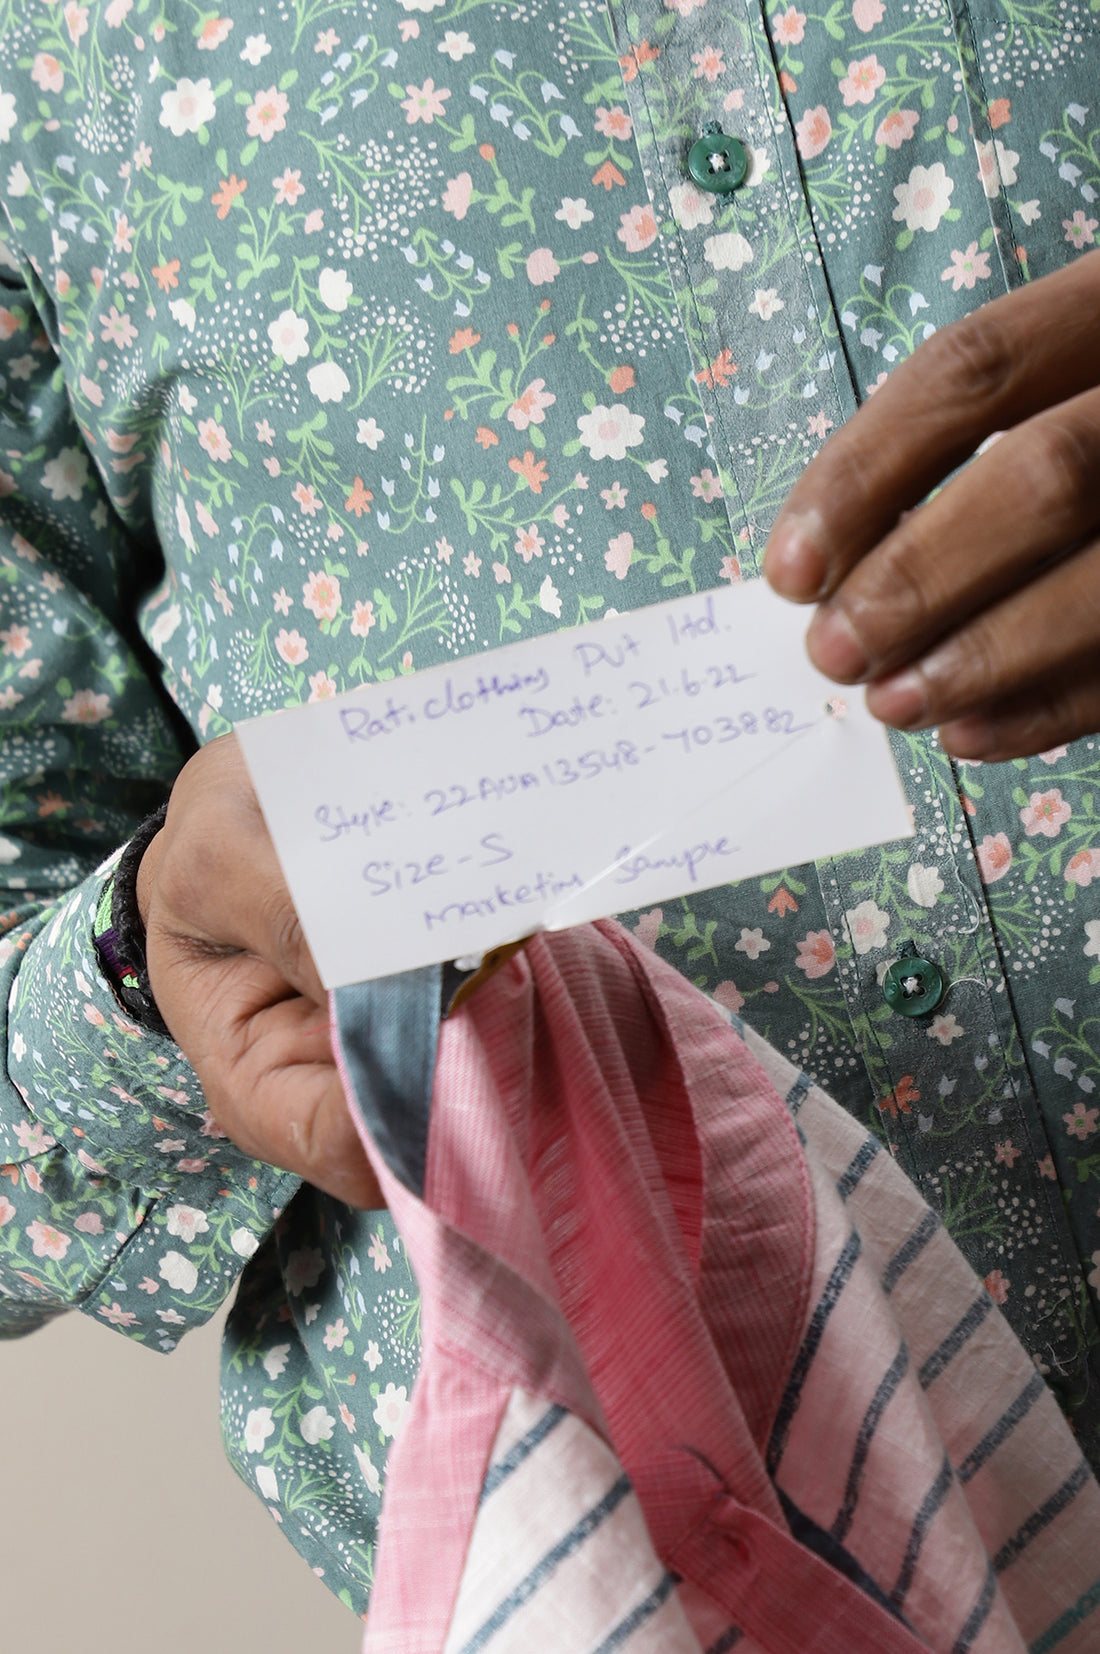 Rati clothing Pvt ltd.
Date: 21.6.22
Style: 22AUA13548-Y03882
Size-S
Marketing Sample